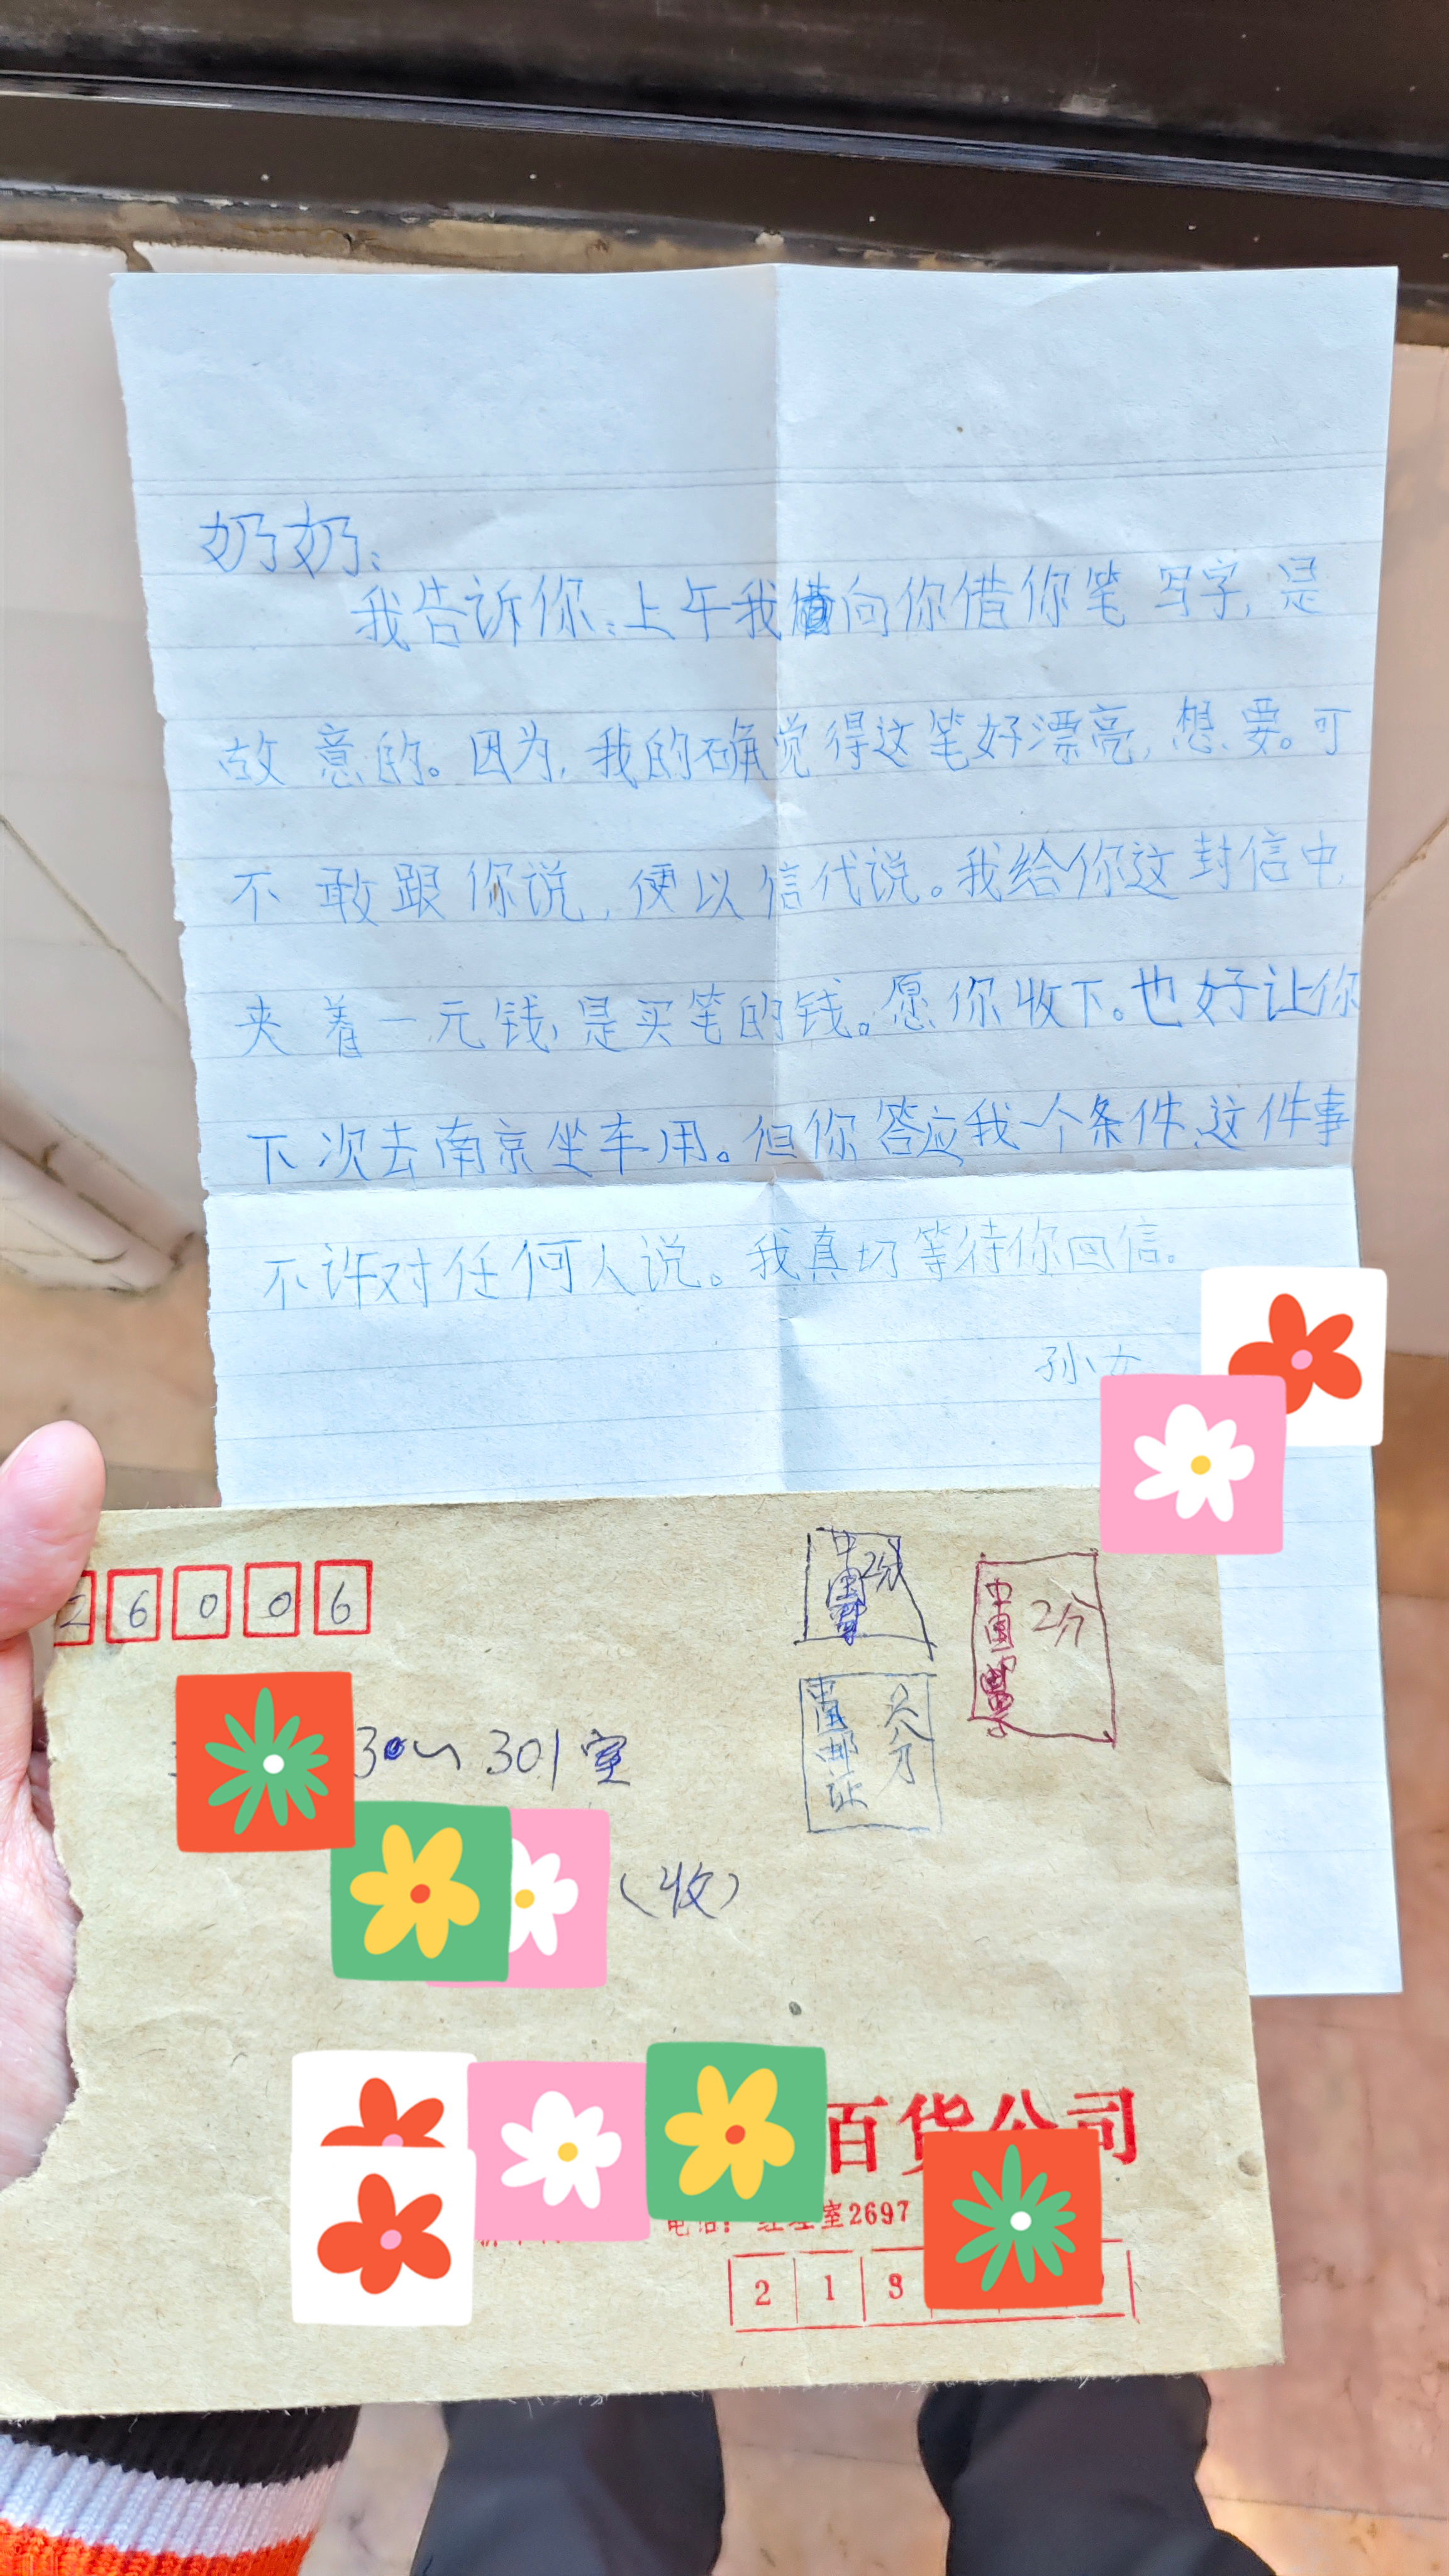 奶奶:
我告诉你:上午我向你借你笔写字,是
故意的。因为,我的确觉得这笔好漂亮,想要。可
不敢跟你说,便以信代说。我给你这封信中,
夹着一元钱,是买笔的钱。愿你收下。也好让你
下次去南京坐车用。但你答应我一个条件,这件事
不许对任何人说。我真切等待你回信。
孙女
2 6 0 0 6
中国 2分
中国 2分
301室
中国邮 八分
(收)
百货公司
电话: 经理室2697
2 1 3